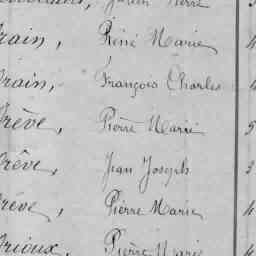 Pierre
rain, René Marie
rain, François Charles
rêve, Pierre Marie 5
rêve, Jean Joseph 3
rêve, Pierre Marie 4
rioux, Pierre Marie 4